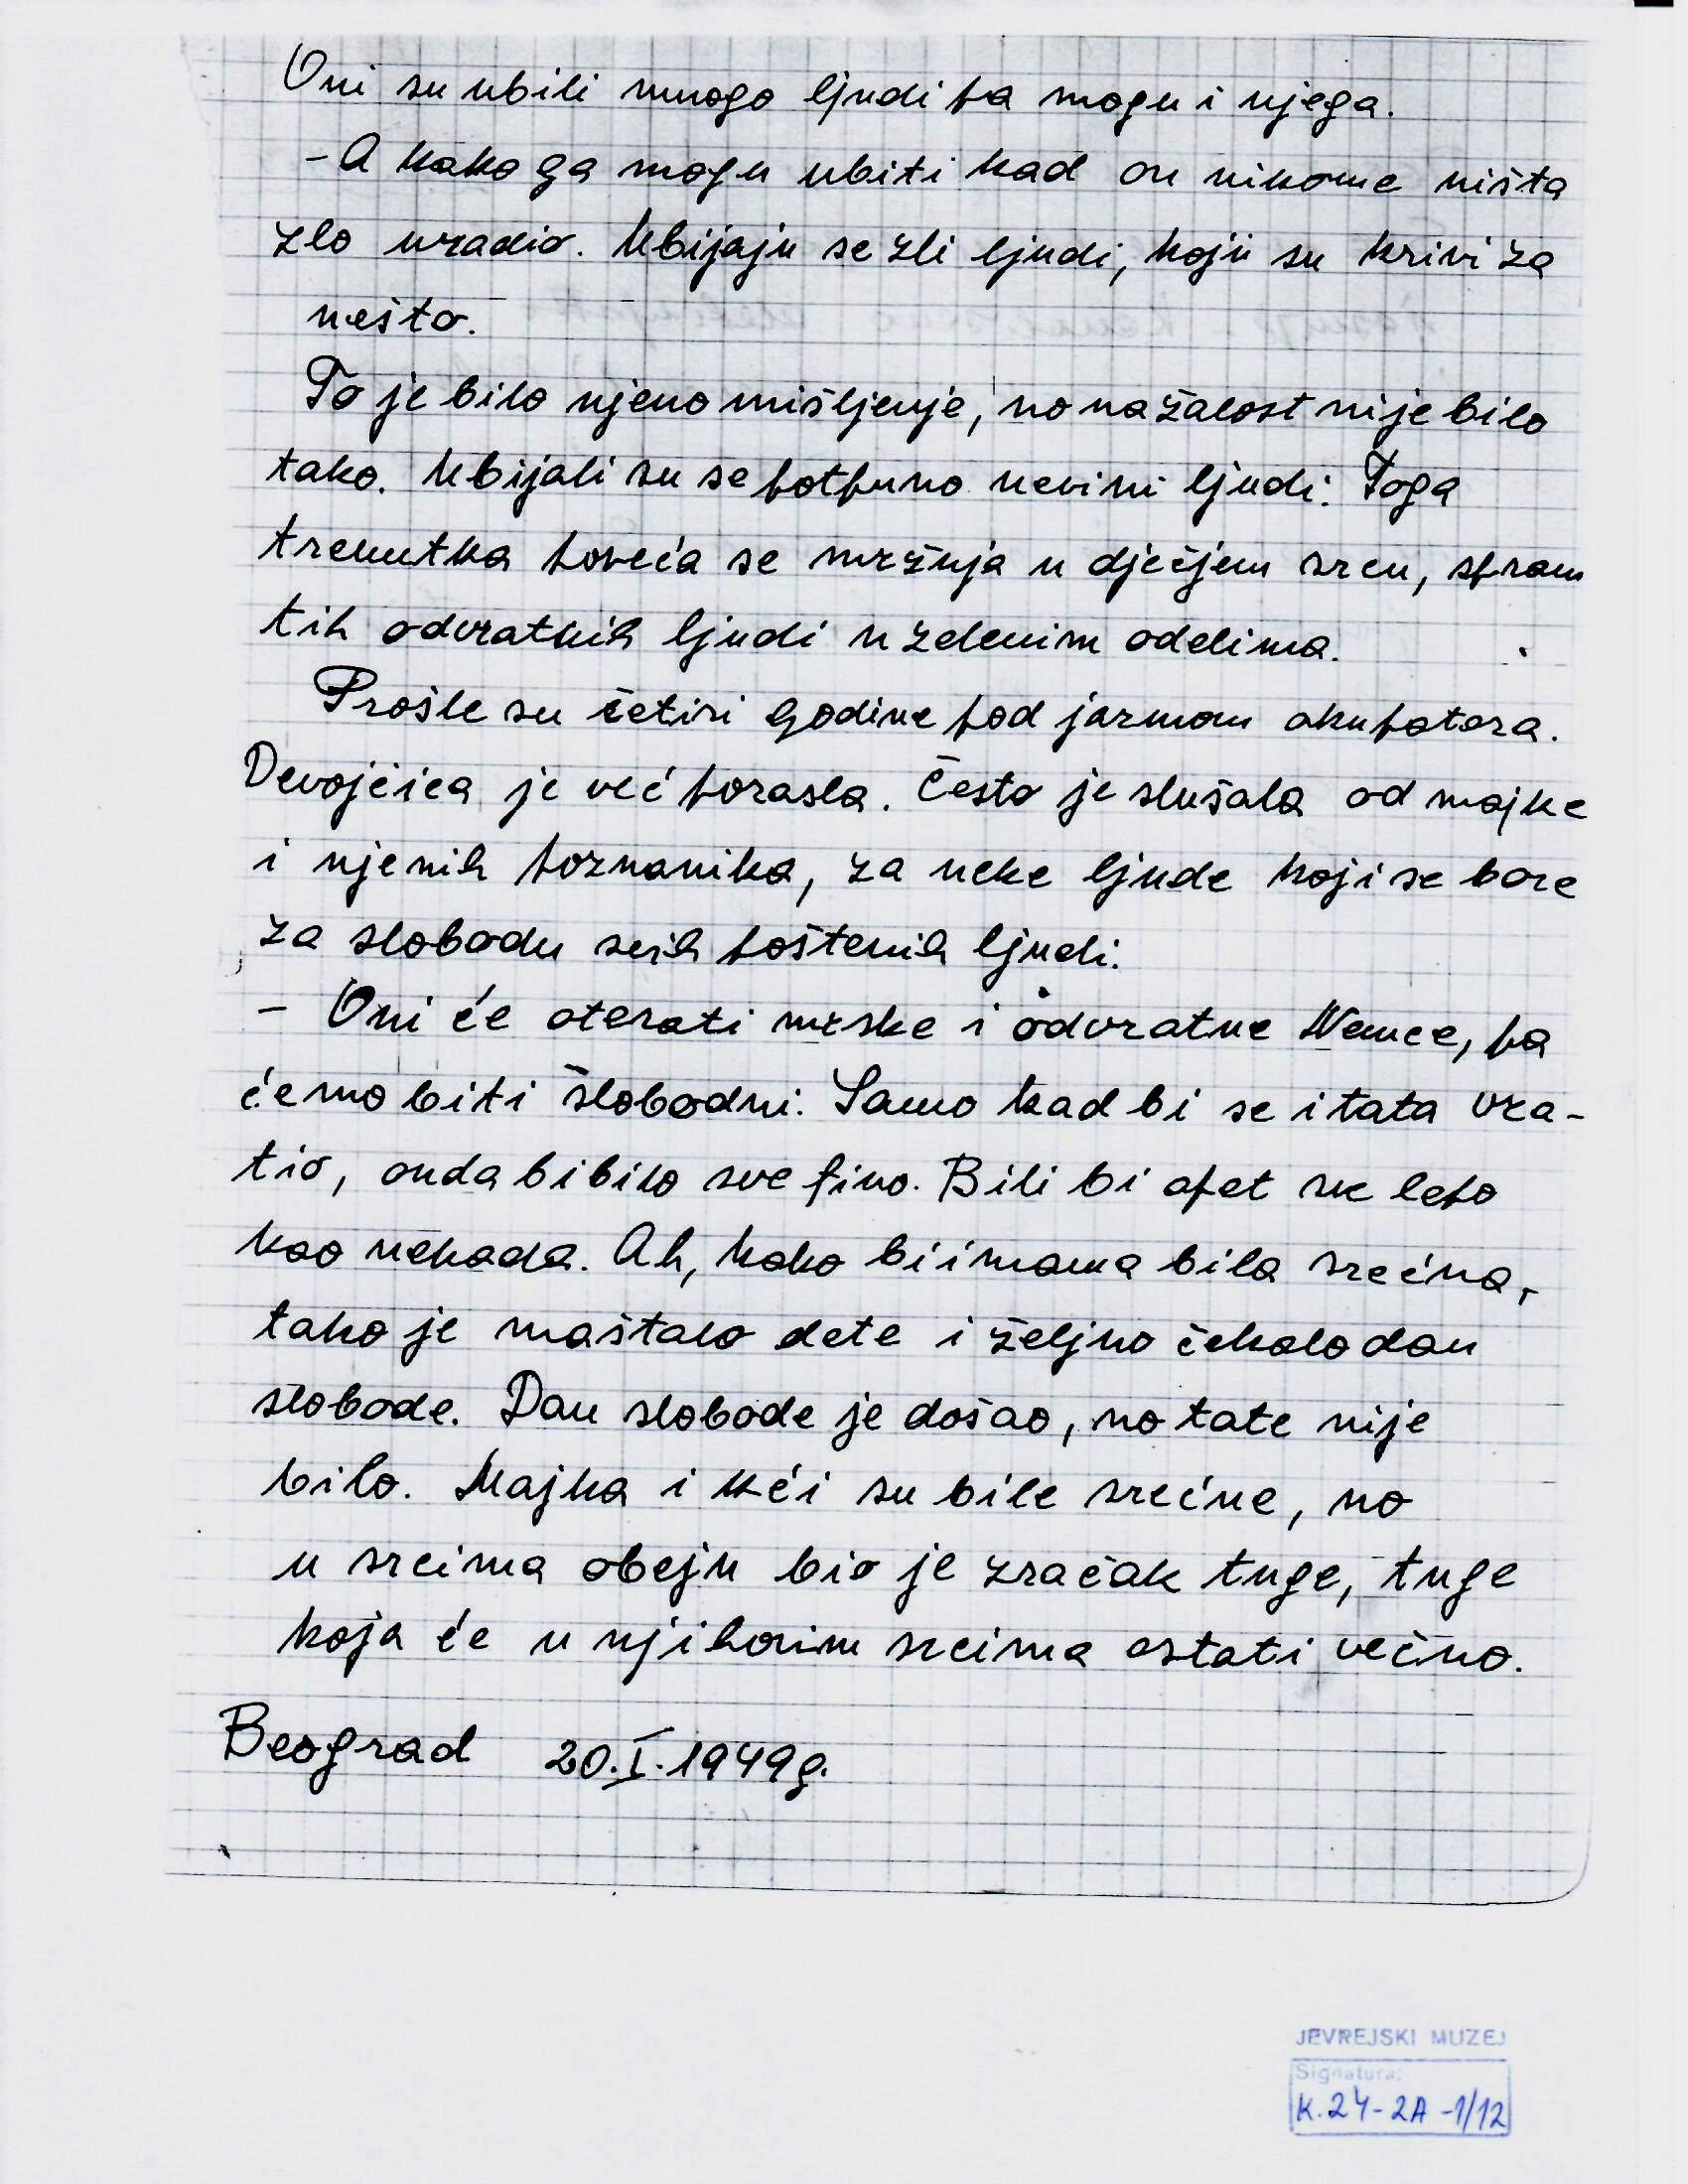 Oni su ubili mnogo ljudi pa mogu i njega.
- A kako ga mogu ubiti kad on nikome ništa
zlo uradio. Ubijaju se zli ljudi, koji su krivi za
nešto.
To je bilo njeno mišljenje, no na žalost nije bilo
tako. Ubijali su se potpuno nevini ljudi. Toga
trenutka poveća se mržnja u dječjem srcu, spram
tih odvratnih ljudi u zelenim odelima.
Prošle su četiri godine pod jarmom okupatora.
Devojčica je već porasla. Često je slušala od majke
i njenih poznanika, za neke ljude koji se bore
za slobodu svih poštenih ljudi.
- Oni će oterati mrske i odvratne Nemce, pa
ćemo biti slobodni. Samo kad bi se i tata vra-
tio, onda bi bilo sve fino. Bili bi opet sve lepo
kao nekada. Ah, kako bi i mama bila srećna,
tako je maštalo dete i željno čekalo dan
slobode. Dan slobode je došao, no tate nije
bilo. Majka i kći su bile srećne, no
u srcima obeju bio je zračak tuge, tuge
koja će u njihovim srcima ostati večno.
Beograd 20.I.1949g.
JEVREJSKI MUZEJ
Signatura:
K.24-2A-1/12